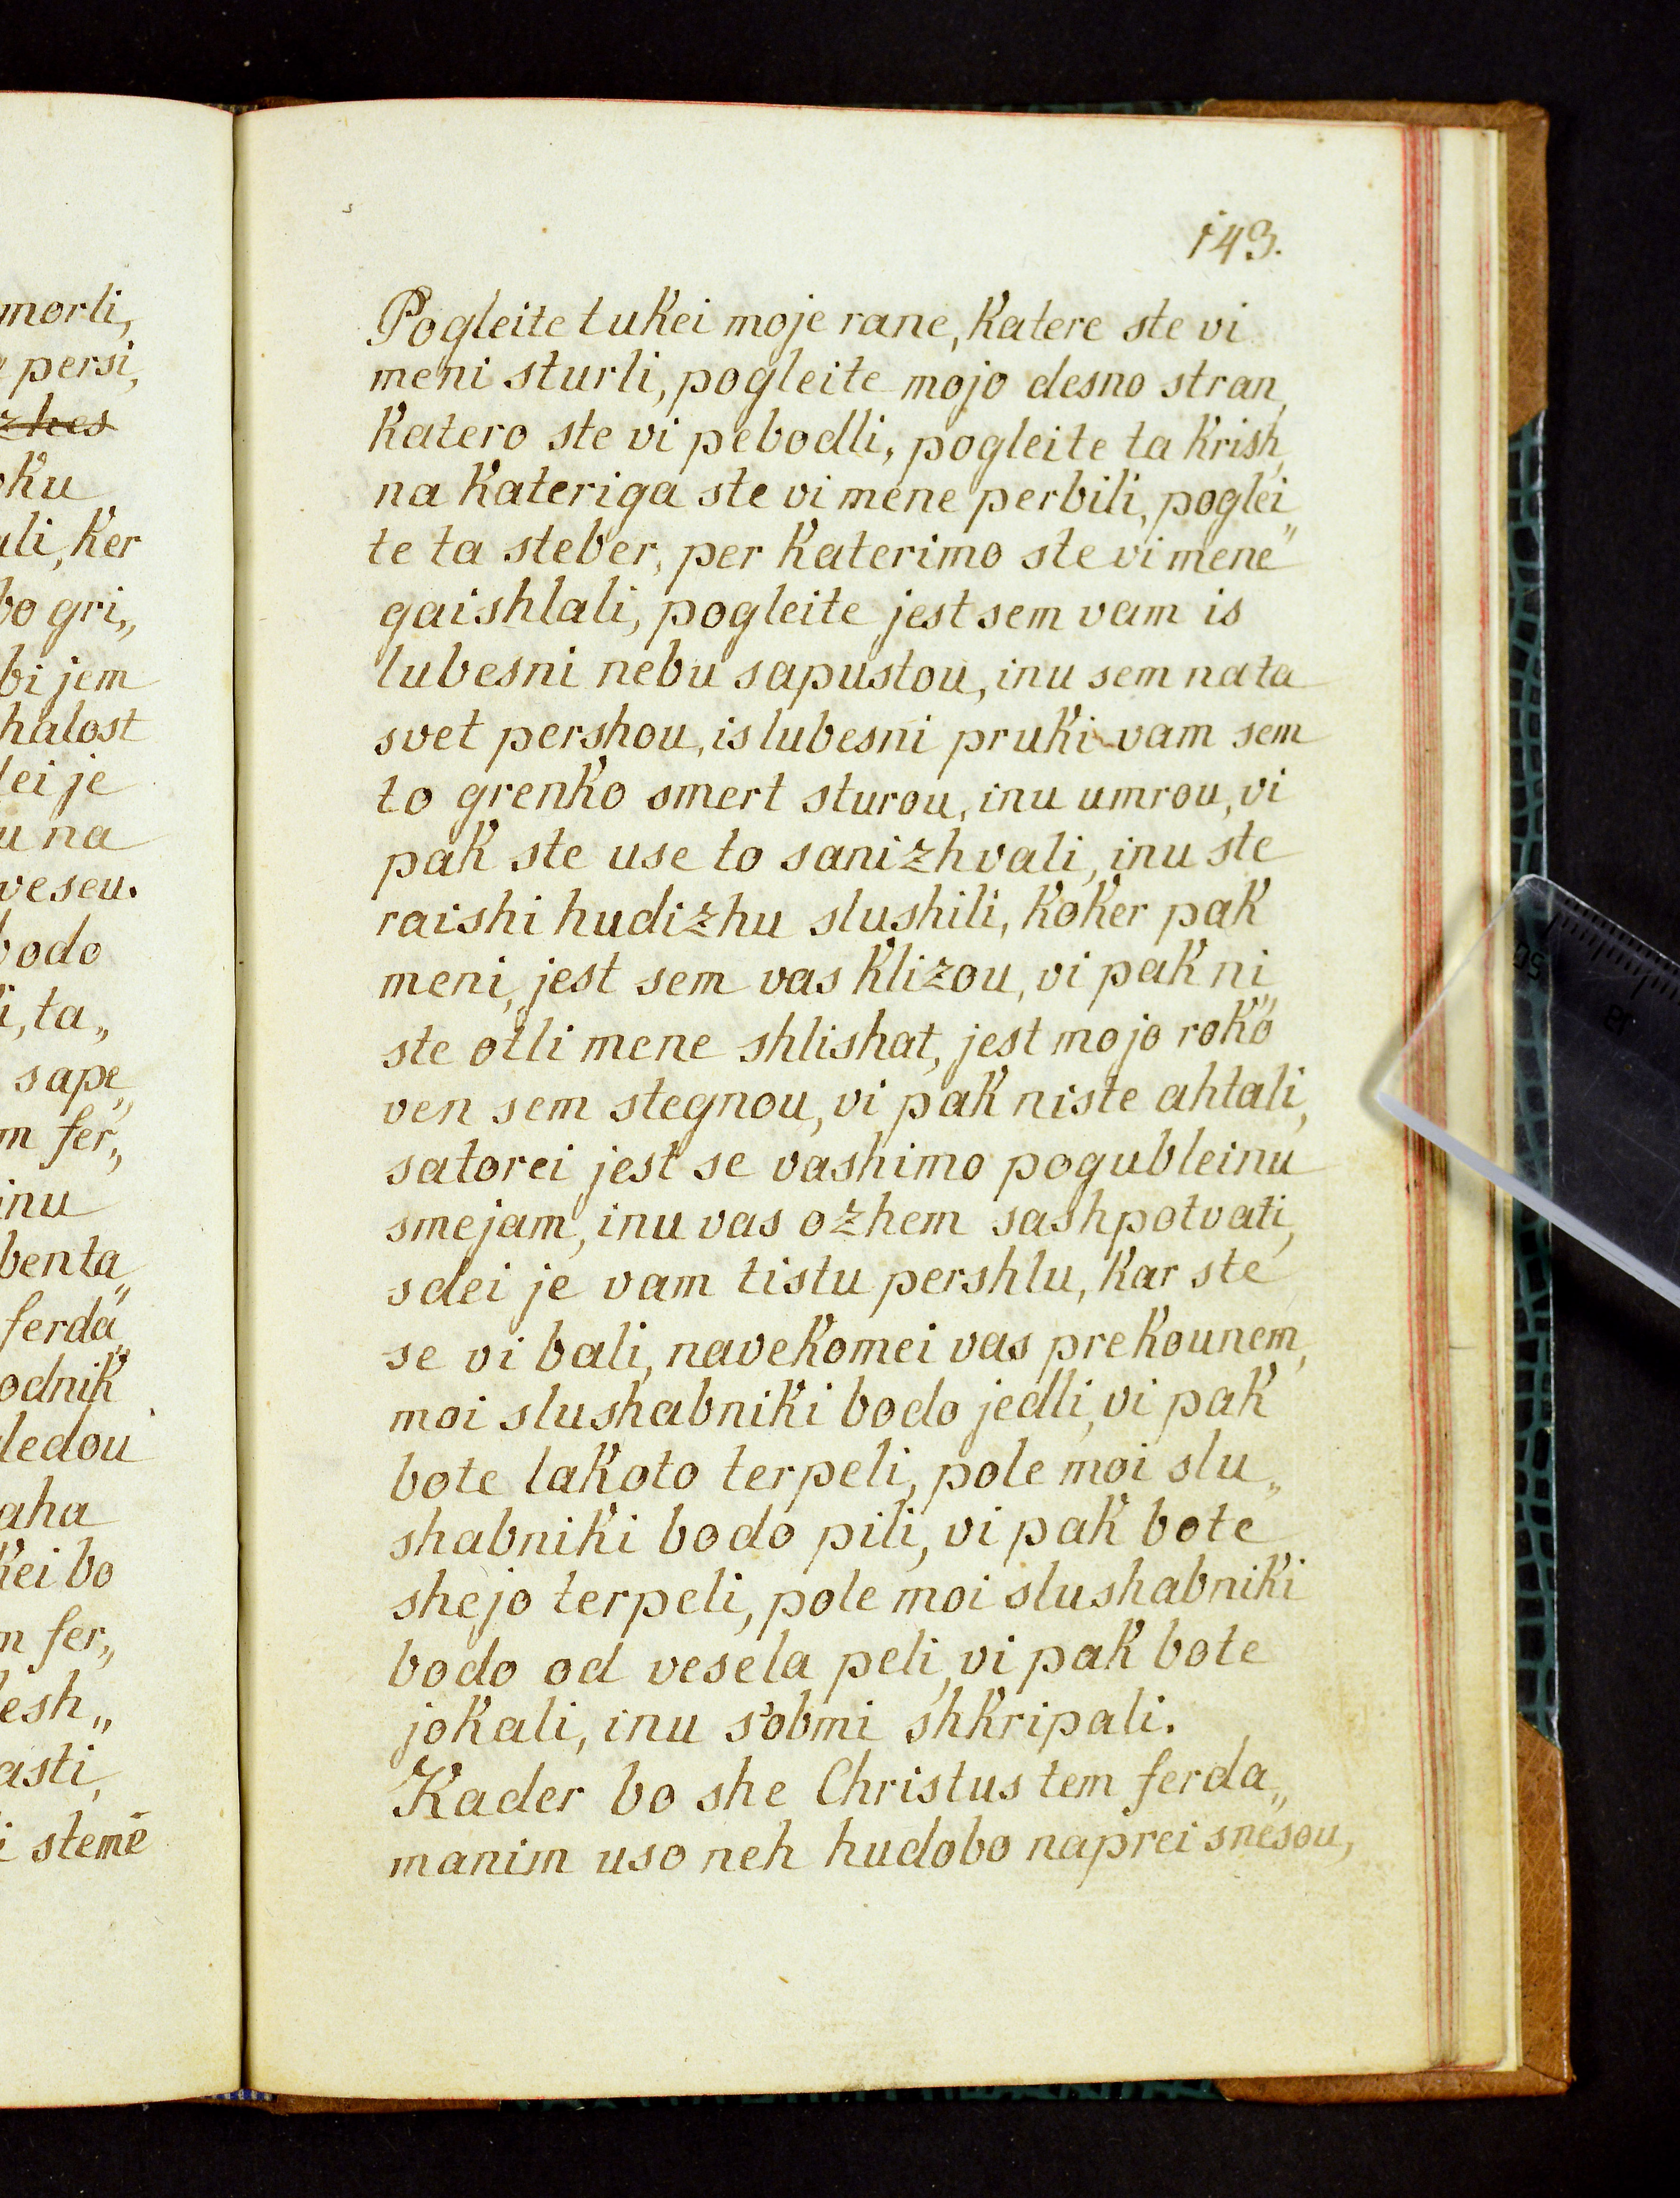 morli,
persi,
zhes
oku
ali, ker
bo gri„
bi jem
halost
lei je
u na
veseu.
bodo
i, ta„
sape„
m fer„
inu
benta„
ferda„
odnik
ledou
aha
kei bo
m fer„
lesh„
asti,
i stemē
143.
Pogleite tukei moje rane, katere ste vi
meni sturli, pogleite mojo desno stran,
katero ste vi pebodli, pogleite ta krish,
na kateriga ste vi mene perbili, poglei„
te ta steber, per katerimo ste vi mene
gaishlali, pogleite jest sem vam is
lubesni nebu sapustou, inu sem na ta
svet pershou, is lubesni pruki vam sem
to grenko smert sturou, inu umrou, vi
pak ste use to sanizhvali, inu ste
raishi hudizhu slushili, koker pak
meni, jest sem vas klizou, vi pak ni„
ste otli mene shlishat, jest mojo roko
ven sem stegnou, vi pak niste ahtali,
satorei jest se vashimo pogubleinu
smejam, inu vas ozhem sashpotvati,
sdei je vam tistu pershlu, kar ste
se vi bali, navekomei vas prekounem,
moi slushabniki bodo jedli, vi pak
bote lakoto terpeli, pole moi slu„
shabniki bodo pili, vi pak bote
shejo terpeli, pole moi slushabniki
bodo od vesela peli, vi pak bote
jokali, inu s'obmi shkripali.
Kader bo she Christus tem ferda„
manim uso neh hudobo naprei snesou,